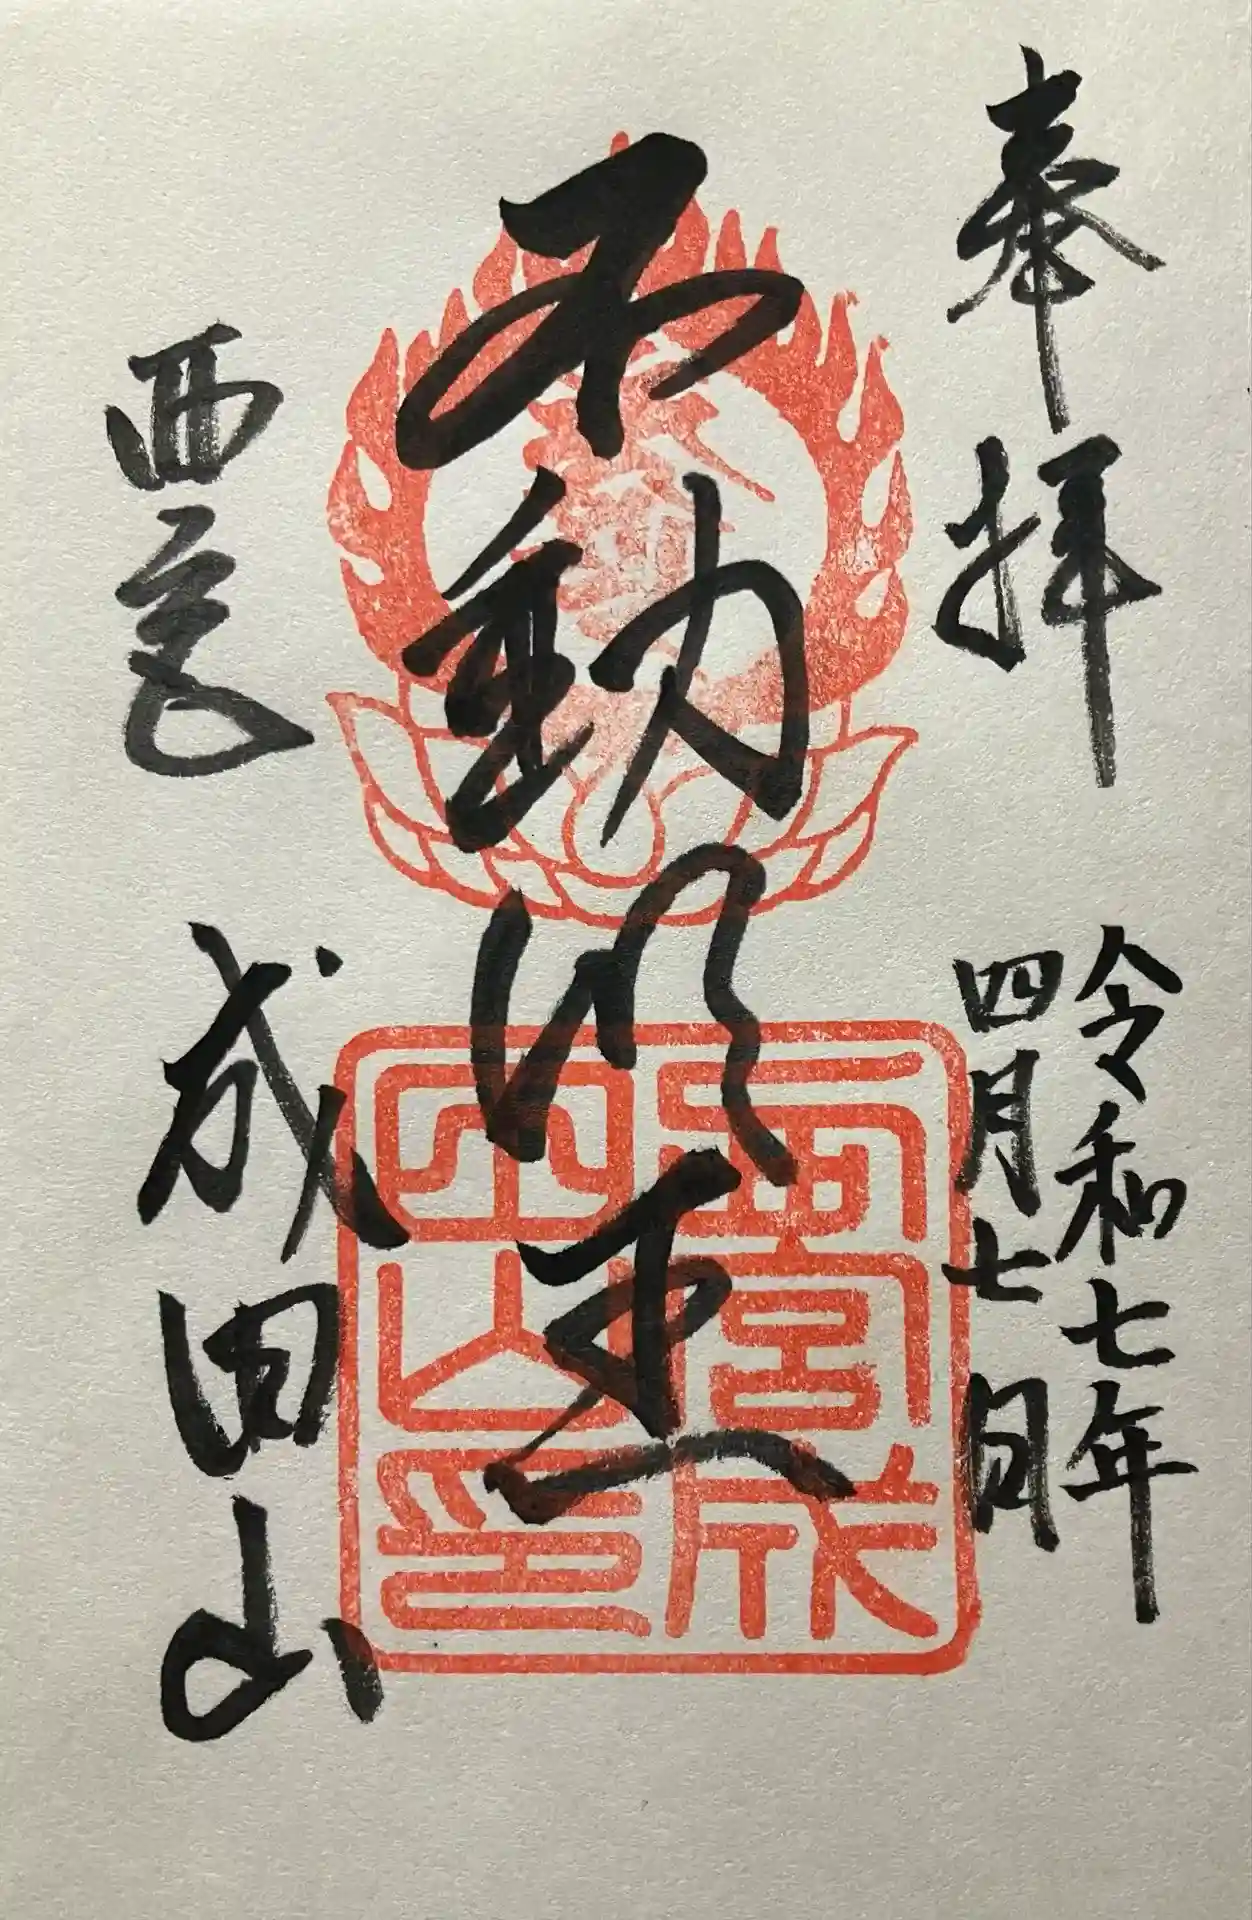 奉拝
令和七年
四月七日
不動明王
西宮
成田山
西宮成
田山印